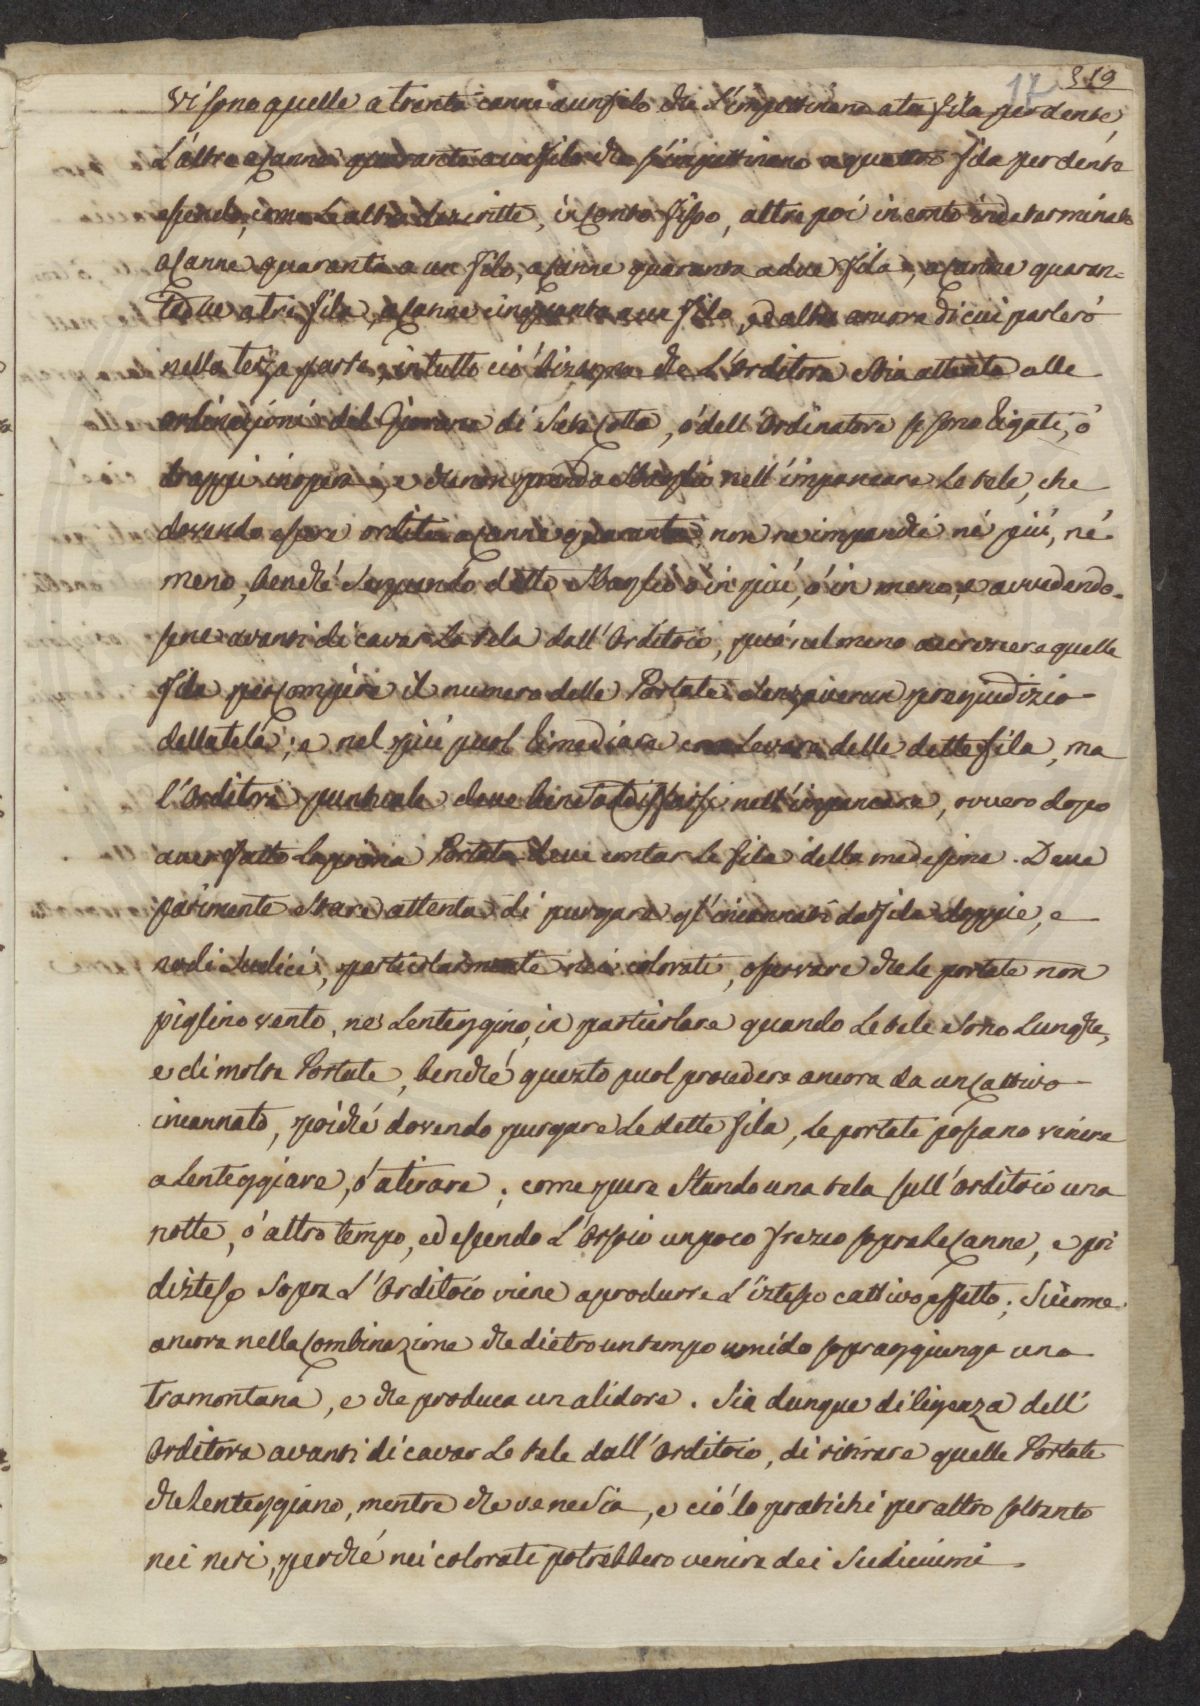 17 319
Vi sono quelle a trenta canne a un filo che s'impettinano a tre fila per dente,
L'altre a canne quaranta a un filo che s'impettinano a quattro fila per dente
essendo, come le altre descritte, in conto fisso, altre poi in conto indeterminato
a canne quaranta a un filo, a canne quaranta a due fila, a canne quaran=
tadue a tre fila, a canne cinquanta a un filo, ed altre ancora di cui parlerò
nella terza parte, in tutto ciò bisogna che L'Orditora stia attenta alle
ordinazioni del Giovane di Seta Cotta, ó dell'Ordinatore se sono ligati, ó
drappi in opera, e che non prenda sbaglio nell'impancare Le tele, che
dovendo essere ordite a canne quaranta non ne impanchi né più, né
meno, benché seguendo detto sbaglio ó in più, ó in meno, e avvedendo=
sene avanti di cavar La tela dall'Orditoio, può nel meno accrescere quelle
fila per compire il numero delle Portate senza verun pregiudizio
della tela; e nel più puol rimediare con Levare delle dette fila, ma
l'Orditora puntuale deve bene sodisfarsi nell'impancare, ovvero dopo
aver fatto La prima Portata deve contar Le fila della medesima. Deve
parimente stare attenta di purgare gl'incannati da fila doppie, e
nodi sudici, particolarmente nei colorati, osservare che Le portate non
piglino vento, ne Lenteggino, in particolare quando Le tele sono Lunghe,
e di molte Portate, benché questo puol procedere ancora da un cattivo
incannato, poiché dovendo purgare Le dette fila, Le portate possano venire
a Lenteggiare, ó a tirare; come pure Stando una tela sull'Orditoio una
notte, ó altro tempo, ed essendo L'Orsoio un poco fresco sopra Le Canne, e poi
disteso Sopra L'Orditoio viene a produrre L'istesso cattivo effetto; Siccome
ancora nella Combinazione che dietro un tempo umido sopraggiunga una
tramontana, e che produca un alidore. Sia dunque diligenza dell'
Orditora avanti di cavar Le tele dall'Orditoio, di ritirare quelle Portate
che Lenteggiano, mentre che ve ne sia, e ciò lo pratichi per altro soltanto
nei neri, perché nei colorati potrebbero venire dei Sudiciumi.